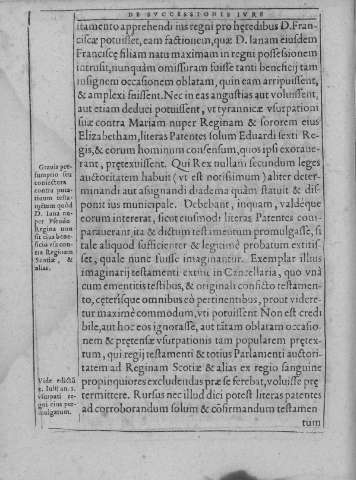 DE SVCCESSIONIS IVRE
stamento apprehendi ius regni pro hęredibus D. Fran-
ciscæ potuisset, eam factionem, quæ D. Ianam eiusdem
Franciscę filiam natu maximam in regni possessionem
intrusit, nunquàm omissuram fuisse tanti beneficij tam
insignem occasionem oblatam, quin eam arripuissent,
& amplexi fuissent. Nec in eas angustias aut voluissent,
aut etiam deduci potuissent, vt tyrannicæ vsurpationi
suæ contra Mariam nuper Reginam & sororem eius
Elizabetham, literas Patentes solum Eduardi sexti Re-
gis, & eorum hominum consensum, quos ipsi exoraue-
rant, prętexuissent. Qui Rex nullam secundum leges
auctoritatem habuit (vt est notissimum) aliter deter-
minandi aut assignandi diadema quàm statuit & dis-
ponit ius municipale. Debebant, inquam, valdéque
eorum intererat, sicut eiusmodi literas Patentes com-
parauerant ita & dictum testamentum promulgasse, si
tale aliquod sufficienter & legitimè probatum extitis-
set, quale nunc fuisse imaginantur. Exemplar illius
imaginarij testamenti extitit in Cancellaria, quo vnà
cum ementitis testibus, & originali conficto testamen-
to, cęterísque omnibus eò pertinentibus, prout videre-
tur maximè commodum, vti potuissent. Non est credi
bile, aut hoc eos ignorasse, aut tàtam oblatam occasio-
nem & prętensæ vsurpationis tam popularem prętex-
tum, qui regij testamenti & totius Parlamenti auctori-
tatem ad Reginam Scotiæ & alias ex regio sanguine
propinquiores excludendas præ se ferebat, voluisse prę
termittere. Rursus nec illud dici potest literas patentes
ad corroborandum solum & cõfirmandum testamen-
tum
Grauis præ-
sumptio seu
coniectura
contra puta-
tiuum testa-
mẽtum quod
D. Iana nu-
per Pseudo
Regina non
sit eius bene-
ficio vsa con-
tra Reginam
Scotiæ, &
alias.
Vide edictũ
1. Iulij an. 1.
vsurpati re-
gni eius pro-
mulgatum.